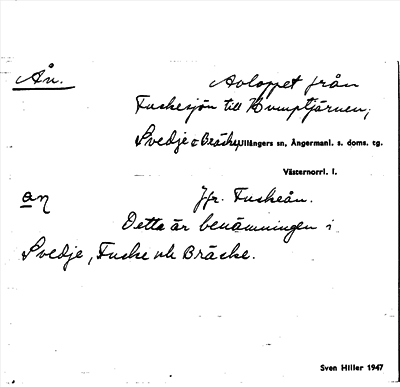 Ån. Avloppet från
Fuskesjön till Kumptjärnen;
Svedje o Bräcke, Ullångers sn, Ångermanl. s. doms. tg.
Västernorrl. l.
an Jfr. Fuskeån.
Detta är benämningen i
Svedje, Fuske och Bräcke.
Sven Hiller 1947